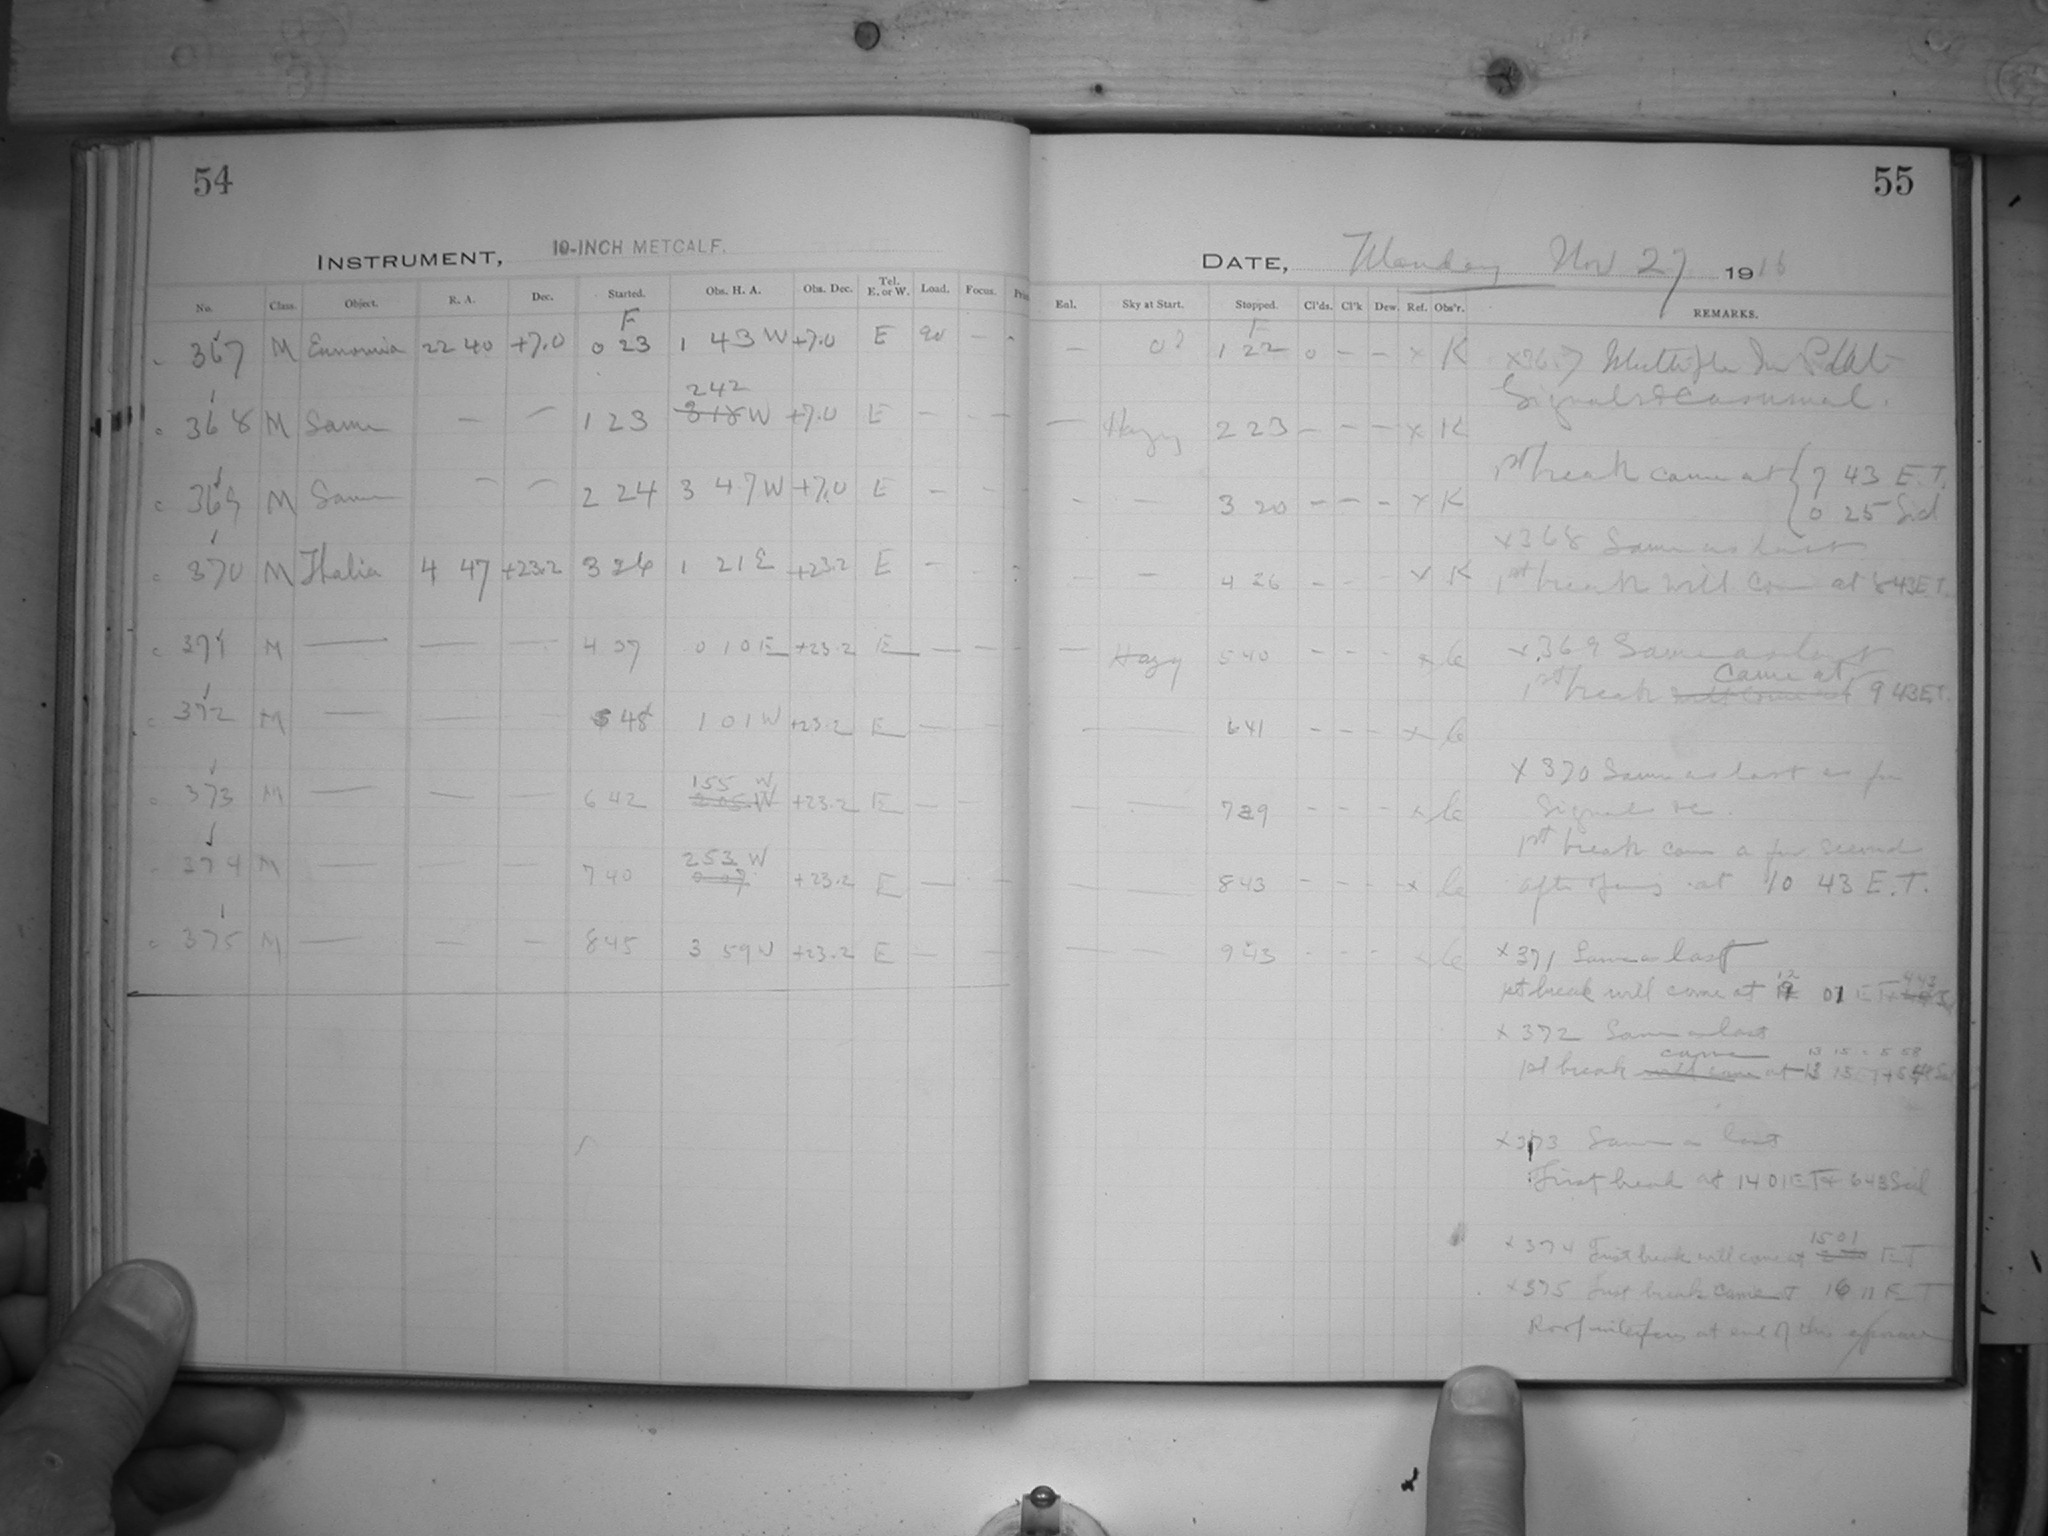 54
INSTRUMENT, 10-INCH METCALF.
No. Class. Object. R. A. Dec. Started. Obs. H. A. Obs. Dec. Tel. E. or W. Load. Focus.
367 M Eunomia 22 40 +7.0 F 0 23 1 43 W +7.0 E 90 - -
368 M Same — — 1 23 242 318 W +7.0 E - - -
369 M Same - - 2 24 3 47 W +7.0 E - - -
370 M Thalia 4 47 +23.2 3 26 1 21 E +23.2 E - -
371 M — — — 4 37 0 10 E +23.2 E - - -
372 M — 5 48 1 01 W +23.2 E - -
373 M — — — 6 42 155 W +23.2 E - -
374 M — — — 7 40 253 W +23.2 E - - -
375 M — — — 8 45 3 59 W +23.2 E - -
55
DATE, Monday Nov 27 1916
Enl. Sky at Start. Stopped. Cl'ds. Cl'k Dew. Ref. Obs'r. REMARKS.
- 0? F 1 22 0 - - x K
— Hazy 2 23 - - - x K
- - 3 20 - - - x K
- - 4 26 - - - x K
- Hazy 5 40 - - - x
- — 6 41 - - - x
- — 7 39 - - - x
- — 8 43 - - - x
— — 9 43 - - -
x367
Signals as usual.
1st break came at 7 43 E.T.
0 25 Sid
x368 Same as last
1st break will come at 8 43 E.T.
x369 Same as last
came at
1st break will come at 9 43 E.T.
x370 Same as last as for
Signals &c.
1st break came a few seconds
after opening at 10 43 E.T.
x371 Same as last
1st break will come at 12 01 E.T. 4 43
x372 Same as last
came 13 15 = 5 58
1st break will come at 13 15 E.T.
x373 Same as last
First break at 14 01 E.T. 643 Sid
1501
x374 First break will come at E T
x375 First break came at 16 11 E T
Roof interferes at end of this exposure